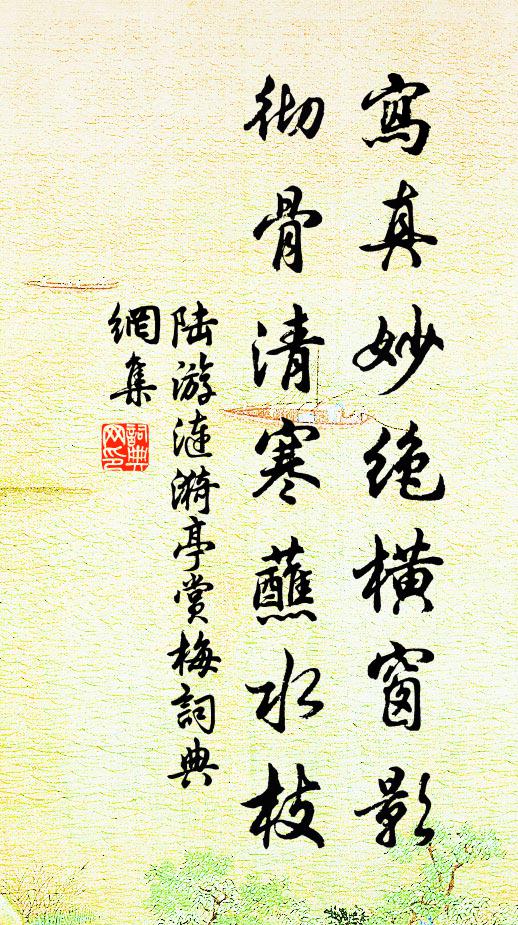 寫真妙絕橫窗影
彻骨清寒蘸水枝
陆游涟漪亭賞梅詞典
網集
詞典
网印